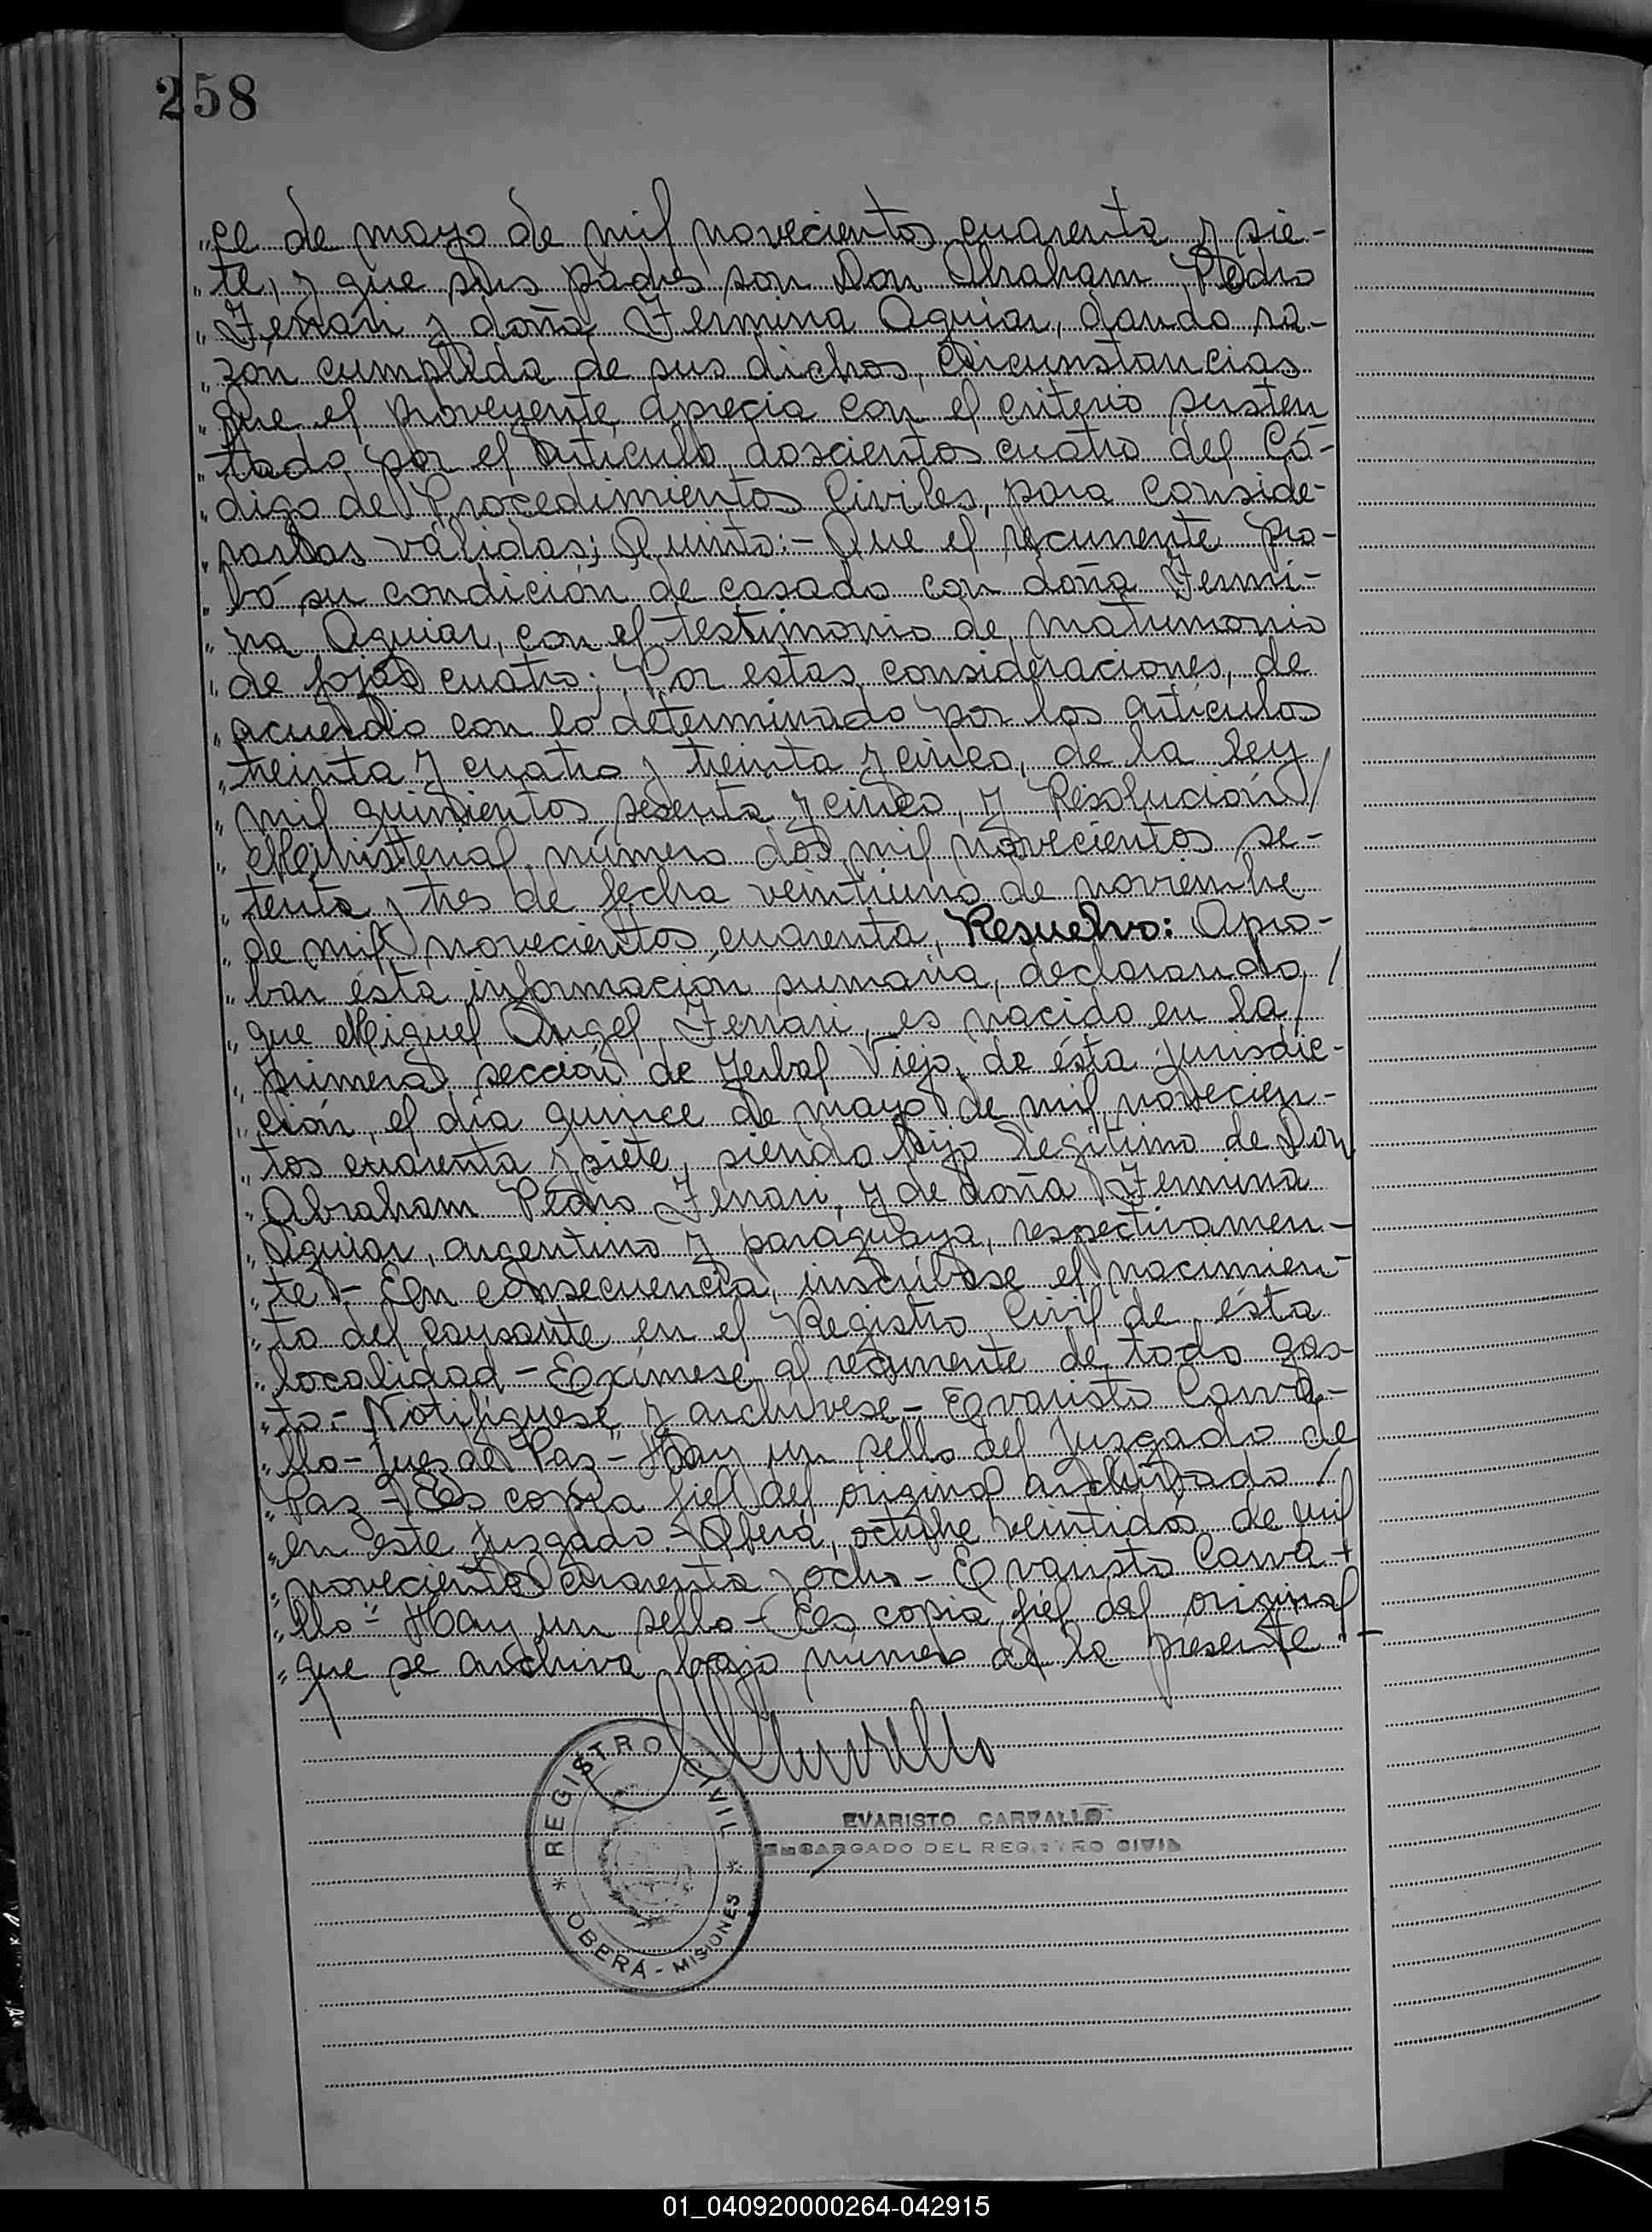 258
"ce de mayo de mil novecientos cuarenta y sie-
"te, y que sus padres son Don Abraham Pedro
"Ferrari y doña Fermina Aguiar, dando ra-
"zón cumplida de sus dichos, circunstancias
"que el proveyente aprecia con el criterio susten
"tado por el artículo doscientos cuatro del Có-
"digo de Procedimientos Civiles, para conside-
"rarlas válidas; Quinto:- Que el recurrente pro-
"bó su condición de casado con doña Fermi-
"na Aguiar, con el testimonio de matrimonio
"de fojas cuatro; Por estas consideraciones, de
"acuerdo con lo determinado por los artículos
"treinta y cuatro y treinta y cinco, de la ley
"mil quinientos sesenta y cinco, y Resolución/
"Ministerial número dos mil novecientos se-
"tenta y tres de fecha veintiuno de noviembre
"de mil novecientos cuarenta, Resuelvo: Apro-
"bar ésta información sumaria, declarando/
"que Miguel Angel Ferrari, es nacido en la/
"primera sección de Yerbal Viejo, de ésta jurisdic-
"ción, el día quince de mayo de mil novecien-
"tos cuarenta y siete, siendo hijo legítimo de Don
"Abraham Pedro Ferrari, y de doña Fermina
"Aguiar, argentino y paraguaya, respectivamen-
"te - En consecuencia, inscríbase el nacimien-
"to del causante en el Registro Civil de ésta
"localidad - Exímese al recurrente de todo gas-
"to - Notifíquese y archívese - Evaristo Carva-
"llo - Juez de Paz - Hay un sello del Juzgado de
"Paz - Es copia fiel del original archivado/
"en este Juzgado - Oberá, octubre veintidós de mil
"novecientos cuarenta y ocho - Evaristo Carva-
"llo" - Hay un sello - Es copia fiel del original
"que se archiva bajo número de la presente -
REGISTRO CIVIL
OBERÁ - MISIONES
EVARISTO CARVALLO
ENCARGADO DEL REGISTRO CIVIL
01_040920000264-042915